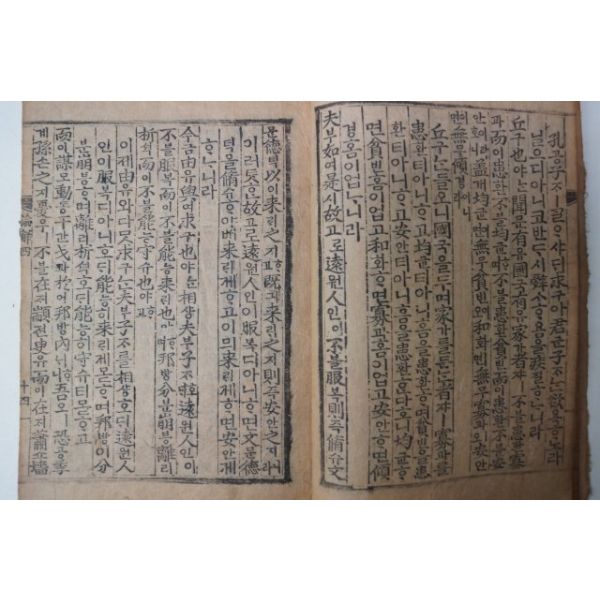 孔공子ᄌᆞㅣᄀᆞᆯᄋᆞ샤ᄃᆡ求구아君군子ᄌᆞᄂᆞᆫ欲욕ᄒᆞ노라
닐ᄋᆞ디아니코반ᄃᆞ시辭ᄉᆞᄒᆞᆷ을疾질ᄒᆞᄂᆞ니라
丘구也야ᄂᆞᆫ聞문有유國국有유家가者쟈ᄂᆞᆫ不블患환寡
과而이患환不블均균ᄒᆞ며不블患환貧빈而이患환不블安
안이라호니蓋개均균이면無무貧빈이오和화ㅣ면無무寡과ㅣ오安안
이면無무傾경이니라
丘구ᄂᆞᆫ들오니國국을두며家가를둔ᄂᆞᆫ者쟈ㅣ寡과를
患환티아니ᄒᆞ고均균티몯홈을患환ᄒᆞ며貧빈을患
환티아니ᄒᆞ고安안티몯홈을患환ᄒᆞᆫ다호니均균ᄒᆞ
면貧빈홈이업고和화ᄒᆞ면寡과홈이업고安안ᄒᆞ면傾
경홈이업ᄂᆞ니라
夫부如여是시故고로遠원人인이不블服복則즉脩슈文
문德덕以이來ᄅᆡ之지ᄒᆞ고旣긔來ᄅᆡ之지則즉安안之지니라
이러툿ᄒᆞᆫ故고로遠원人인이服복디아니ᄒᆞ면文문德
덕을脩슈ᄒᆞ야ᄡᅥ來ᄅᆡ케ᄒᆞ고이믜來ᄅᆡ케ᄒᆞ면安안케
ᄒᆞᄂᆞ니라
今금由유與여求구也야ᄂᆞᆫ相샹夫부子ᄌᆞ호ᄃᆡ遠원人인이
不블服복而이不블能능來ᄅᆡ也야ᄒᆞ며邦방分분崩붕離리
析셕而이不블能능守슈也야ᄒᆞ고
이제由유와다ᄆᆞᆺ求구ᄂᆞᆫ夫부子ᄌᆞ를相샹호ᄃᆡ遠원人
인이服복디아니호ᄃᆡ能능히來ᄅᆡ케몯ᄒᆞ며邦방이分
분崩붕ᄒᆞ며離리析셕호ᄃᆡ能능히守슈티몯ᄒᆞ고
而이謀모動동干간戈과於어邦방內ᄂᆡᄒᆞ니吾오ㅣ恐공季
계孫손之지憂우ㅣ不블在ᄌᆡ顓젼臾유而이在ᄌᆡ蕭쇼墻
四 十四